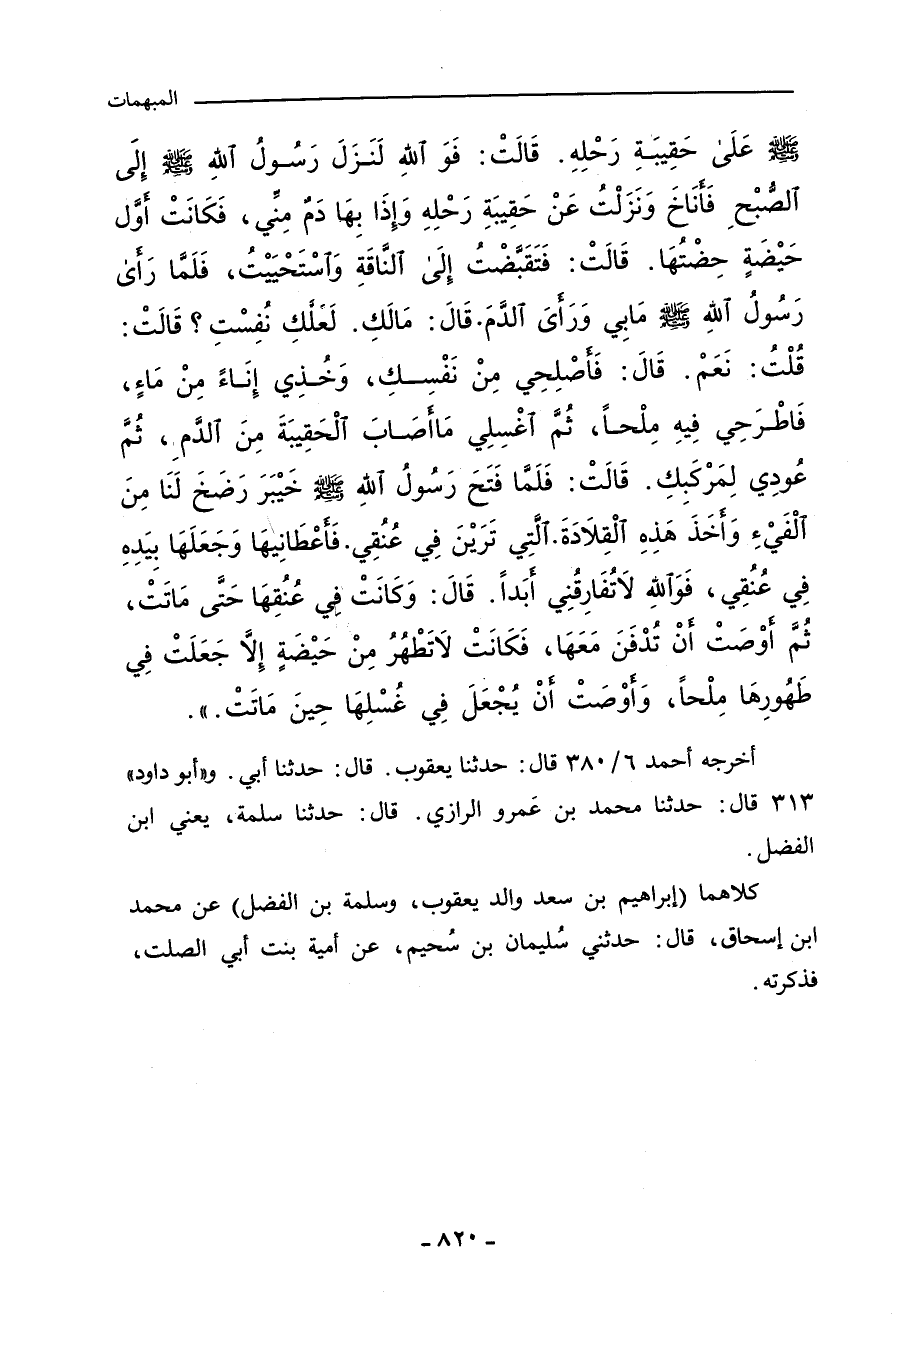 المبهمات
ﷺ عَلَىٰ حَقِيبَةِ رَحْلِهِ. قَالَتْ: فَوَ ٱللهِ لَنَزَلَ رَسُولُ ٱللهِ ﷺ إِلَى
ٱلصُّبْحِ فَأَنَاخَ وَنَزَلْتُ عَنْ حَقِيبَةِ رَحْلِهِ وَإِذَا بِهَا دَمٌ مِنِّي، فَكَانَتْ أَوَّل
حَيْضَةٍ حِضْتُهَا. قَالَتْ: فَتَقَبَّضْتُ إِلَىٰ ٱلنَّاقَةِ وَٱسْتَحْيَيْتُ، فَلَمَّا رَأَىٰ
رَسُولُ ٱللهِ ﷺ مَابِي وَرَأَىَ ٱلدَّمَ. قَالَ: مَالَكِ. لَعَلَّكِ نُفِسْتِ؟ قَالَتْ:
قُلْتُ: نَعَمْ. قَالَ: فَأَصْلِحِي مِنْ نَفْسِكِ، وَخُذِي إِنَاءً مِنْ مَاءٍ،
فَاطْرَحِي فِيهِ مِلْحاً، ثُمَّ ٱغْسِلِي مَاأَصَابَ ٱلْحَقِيبَةَ مِنَ ٱلدَّمِ، ثُمَّ
عُودِي لِمَرْكَبِكِ. قَالَتْ: فَلَمَّا فَتَحَ رَسُولُ ٱللهِ ﷺ خَيْبَرَ رَضَخَ لَنَا مِنَ
ٱلْفَيْءِ وَأَخَذَ هَذِهِ ٱلْقِلَادَةَ. ٱلَّتِي تَرَيْنَ فِي عُنُقِي. فَأَعْطَانِيهَا وَجَعَلَهَا بِيَدِهِ
فِي عُنُقِي، فَوَٱللهِ لَاتُفَارِقُنِي أَبَداً. قَالَ: وَكَانَتْ فِي عُنُقِهَا حَتَّى مَاتَتْ،
ثُمَّ أَوْصَتْ أَنْ تُدْفَنَ مَعَهَا، فَكَانَتْ لَاتَطْهُرُ مِنْ حَيْضَةٍ إِلَّا جَعَلَتْ فِي
طَهُورِهَا مِلْحاً، وَأَوْصَتْ أَنْ يُجْعَلَ فِي غُسْلِهَا حِينَ مَاتَتْ.».
أخرجه أحمد ٣٨٠/٦ قال: حدثنا يعقوب. قال: حدثنا أبي. و«أبو داود»
٣١٣ قال: حدثنا محمد بن عَمرو الرازي. قال: حدثنا سلمة، يعني ابن
الفضل.
كلاهما (إبراهيم بن سعد والد يعقوب، وسلمة بن الفضل) عن محمد
ابن إسحاق، قال: حدثني سُليمان بن سُحيم، عن أمية بنت أبي الصلت،
فذكرته.
- ٨٢٠ -